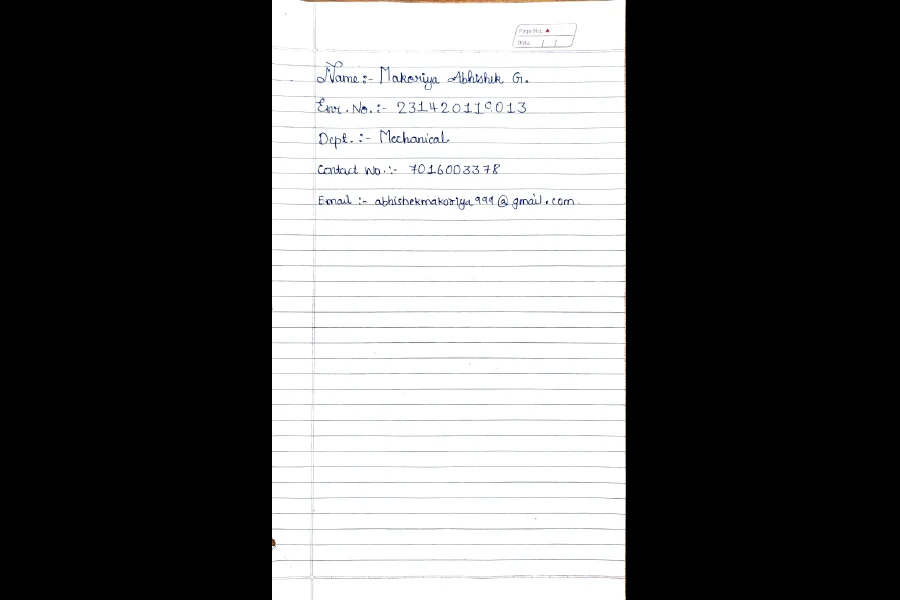 Page No.:
Date:
Name :- Makoriya Abhishek G.
Enr. No. :- 231420119013
Dept. :- Mechanical
Contact No. :- 7016003378
Email :- abhishekmakoriya999@gmail.com